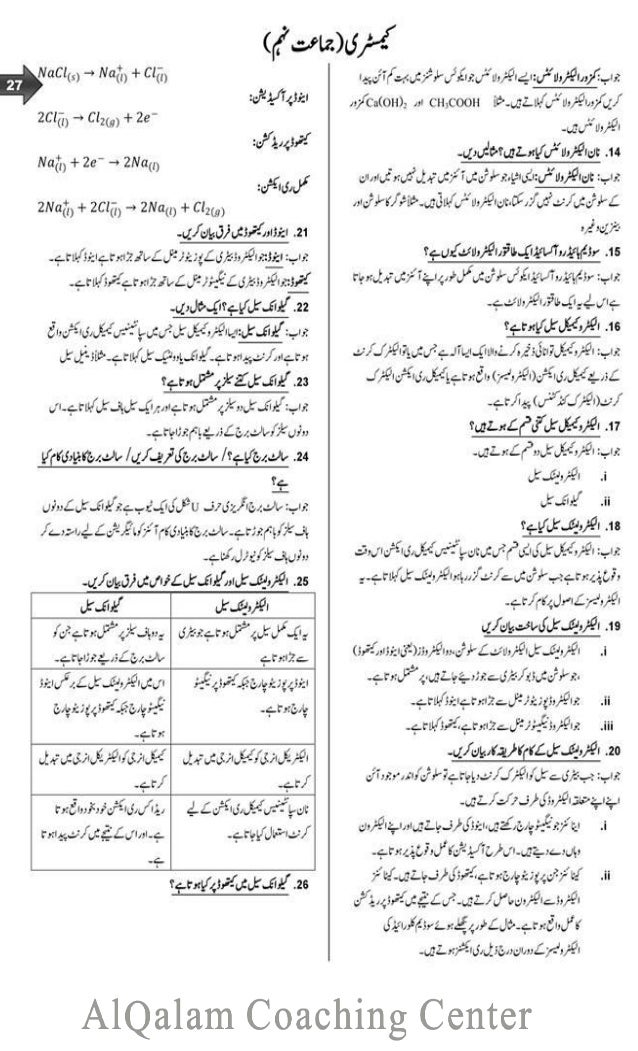 کیمسٹری (جماعت نہم)
27
جواب: کمزور الیکٹرولائٹس: ایسے الیکٹرولائٹس جو ایکوئس سلوشنز میں بہت کم آئن پیدا
کریں کمزور الیکٹرولائٹس کہلاتے ہیں۔ مثلاً CH₃COOH اور Ca(OH)₂ کمزور
الیکٹرولائٹس ہیں۔
14. نان الیکٹرولائٹس کیا ہوتے ہیں؟ مثالیں دیں۔
جواب: نان الیکٹرولائٹس: ایسی اشیاء جو سلوشن میں آئنز میں تبدیل نہیں ہوتیں اور ان
کے سلوشن میں کرنٹ نہیں گزر سکتا، نان الیکٹرولائٹس کہلاتی ہیں۔ مثلاً شوگر کا سلوشن اور
بینزین وغیرہ
15. سوڈیم ہائیڈرو آکسائیڈ ایک طاقتور الیکٹرولائٹ کیوں ہے؟
جواب: سوڈیم ہائیڈرو آکسائیڈ ایکوئس سلوشن میں مکمل طور پر اپنے آئنز میں تبدیل ہو جاتا
ہے اس لیے یہ ایک طاقتور الیکٹرولائٹ ہے۔
16. الیکٹروکیمیکل سیل کیا ہوتا ہے؟
جواب: الیکٹروکیمیکل توانائی ذخیرہ کرنے والا ایک ایسا آلہ ہے جس میں یا تو الیکٹرک کرنٹ
کے ذریعے کیمیکل ری ایکشن (الیکٹرولیسز) واقع ہوتا ہے یا کیمیکل ری ایکشن الیکٹرک
کرنٹ (الیکٹرک کنڈکٹنس) پیدا کرتا ہے۔
17. الیکٹروکیمیکل سیل کتنی قسم کے ہوتے ہیں؟
جواب: الیکٹروکیمیکل سیل دو قسم کے ہوتے ہیں۔
i. الیکٹرولیٹک سیل
ii. گیلوانک سیل
18. الیکٹرولیٹک سیل کیا ہے؟
جواب: الیکٹروکیمیکل سیل کی ایسی قسم جس میں نان سپانٹینیس کیمیکل ری ایکشن اس وقت
وقوع پذیر ہوتا ہے جب سلوشن میں سے کرنٹ گزر رہا ہو الیکٹرولیٹک سیل کہلاتا ہے۔ یہ
الیکٹرولیسز کے اصول پر کام کرتا ہے۔
19. الیکٹرولیٹک سیل کی ساخت بیان کریں
i. الیکٹرولیٹک سیل الیکٹرولائٹ کے سلوشن، دو الیکٹروڈز (یعنی اینوڈ اور کیتھوڈ)
، جو سلوشن میں ڈبو کر بیٹری سے جوڑ دیے جاتے ہیں، پر مشتمل ہوتا ہے۔
ii. جو الیکٹروڈ پوزیٹو ٹرمینل سے جڑا ہوتا ہے اینوڈ کہلاتا ہے۔
iii. جو الیکٹروڈ نیگیٹو ٹرمینل سے جڑا ہوتا ہے، کیتھوڈ کہلاتا ہے۔
20. الیکٹرولیٹک سیل کے کام کا طریقہ کار بیان کریں۔
جواب: جب بیٹری سے سیل کو الیکٹرک کرنٹ دیا جاتا ہے تو سلوشن کو اندر موجود آئن
اپنے اپنے متعلقہ الیکٹروڈ کی طرف حرکت کرتے ہیں۔
i. اینائنز جو نیگیٹو چارج رکھتے ہیں، اینوڈ کی طرف جاتے ہیں اور اپنے الیکٹرون
وہاں دے دیتے ہیں۔ اس طرح آکسیڈیشن کا عمل وقوع پذیر ہوتا ہے۔
ii. کیٹائنز جن پر پوزیٹو چارج ہوتا ہے، کیتھوڈ کی طرف جاتے ہیں۔ کیٹائنز
الیکٹروڈ سے الیکٹرون حاصل کرتے ہیں۔ جس کے نتیجے میں کیتھوڈ پر ریڈکشن
کا عمل واقع ہوتا ہے۔ مثال کے طور پر پگھلے ہوئے سوڈیم کلورائیڈ کی
الیکٹرولیسز کے دوران درج ذیل ری ایکشنز ہوتے ہیں۔
NaCl(s) → Na⁺(l) + Cl⁻(l)
اینوڈ پر آکسیڈیشن:
2Cl⁻(l) → Cl₂(g) + 2e⁻
کیتھوڈ پر ریڈکشن:
Na⁺(l) + 2e⁻ → 2Na(l)
مکمل ری ایکشن:
2Na⁺(l) + 2Cl⁻(l) → 2Na(l) + Cl₂(g)
21. اینوڈ اور کیتھوڈ میں فرق بیان کریں۔
جواب: اینوڈ: جو الیکٹروڈ بیٹری کے پوزیٹو ٹرمینل کے ساتھ جڑا ہوتا ہے اینوڈ کہلاتا ہے۔
کیتھوڈ: جو الیکٹروڈ بیٹری کے نیگیٹو ٹرمینل کے ساتھ جڑا ہوتا ہے کیتھوڈ کہلاتا ہے۔
22. گیلوانک سیل کیا ہے؟ ایک مثال دیں۔
جواب: گیلوانک سیل: ایسا الیکٹروکیمیکل سیل جس میں سپانٹینیس کیمیکل ری ایکشن واقع
ہوتا ہے اور کرنٹ پیدا ہوتا ہے۔ گیلوانک یا وولٹیک سیل کہلاتا ہے۔ مثلاً ڈینیل سیل
23. گیلوانک سیل کتنے سیلز پر مشتمل ہوتا ہے؟
جواب: گیلوانک سیل دو سیلز پر مشتمل ہوتا ہے اور ہر ایک سیل ہاف سیل کہلاتا ہے۔ اس
دونوں سیلز کو سالٹ برج کے ذریعے باہم جوڑا جاتا ہے۔
24. سالٹ برج کیا ہے؟ / سالٹ برج کی تعریف کریں / سالٹ برج کا بنیادی کام کیا
ہے؟
جواب: سالٹ برج انگریزی حرف U شکل کی ایک ٹیوب ہے جو گیلوانک سیل کے دونوں
ہاف سیلز کو باہم جوڑتا ہے۔ سالٹ برج کا بنیادی کام آئنز کو مائیگریشن کے لیے راستہ دے کر
دونوں ہاف سیلز کو نیوٹرل رکھنا ہے۔
25. الیکٹرولیٹک سیل اور گیلوانک سیل کے خواص میں فرق بیان کریں۔
الیکٹرولیٹک سیل گیلوانک سیل
یہ ایک مکمل سیل پر مشتمل ہوتا ہے جو بیٹری یہ دو ہاف سیلز پر مشتمل ہوتا ہے جن کو
سے جڑا ہوتا ہے سالٹ برج کے ذریعے جوڑا جاتا ہے۔
اینوڈ پر پوزیٹو چارج جبکہ کیتھوڈ پر نیگیٹو اس میں الیکٹرولیٹک سیل کے برعکس اینوڈ
چارج ہوتا ہے۔ نیگیٹو چارج جبکہ کیتھوڈ پر پوزیٹو چارج
ہوتا ہے۔
الیکٹریکل انرجی کو کیمیکل انرجی میں تبدیل کیمیکل انرجی کو الیکٹریکل انرجی میں تبدیل
کرتا ہے۔ کرتا ہے۔
نان سپانٹینیس کیمیکل ری ایکشن کے لیے ریڈاکس ری ایکشن خود بخود واقع ہوتا
کرنٹ استعمال کیا جاتا ہے۔ ہے۔ اور اس کے نتیجے میں کرنٹ پیدا ہوتا
ہے۔
26. گیلوانک سیل میں کیتھوڈ پر کیا ہوتا ہے؟
AlQalam Coaching Center